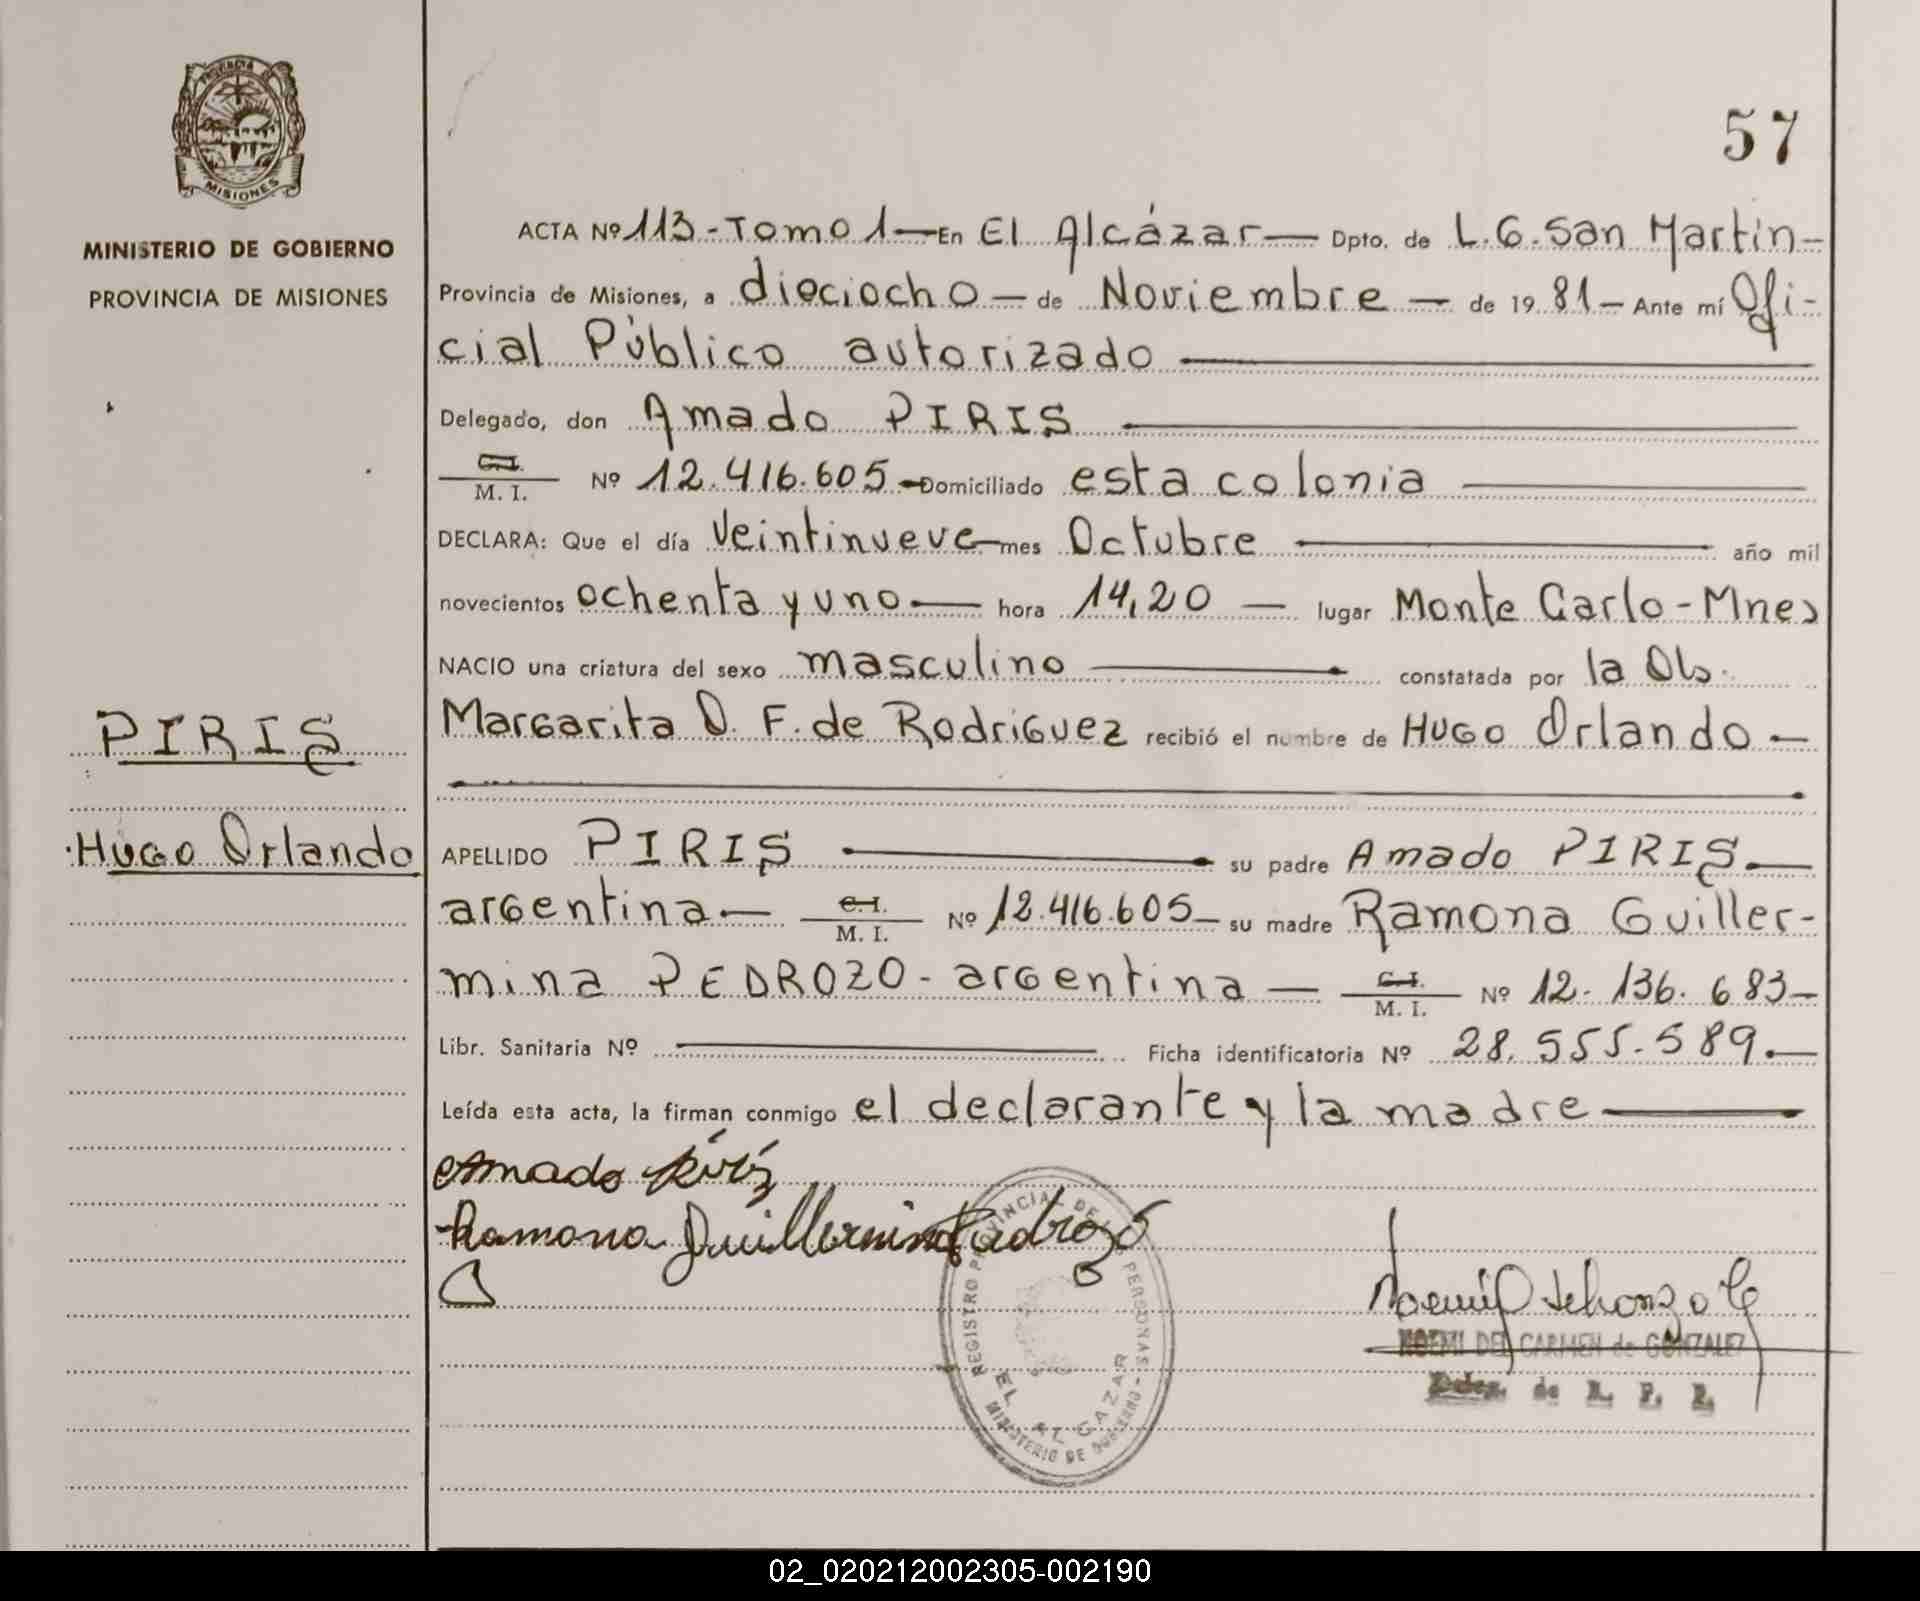 PROVINCIA DE
MISIONES
MINISTERIO DE GOBIERNO
PROVINCIA DE MISIONES
57
ACTA Nº 113-Tomo 1— En El Alcázar— Dpto. de L.G. San Martín-
Provincia de Misiones, a dieciocho — de Noviembre — de 19 81— Ante mí Ofi-
cial Público autorizado
Delegado, don Amado PIRIS
C.I.
M. I. Nº 12.416.605 - Domiciliado esta colonia
DECLARA: Que el día Veintinueve mes Octubre año mil
novecientos ochenta y uno — hora 14,20 — lugar Monte Carlo-Mnes
NACIO una criatura del sexo masculino constatada por la Obs.
Margarita D. F. de Rodriguez recibió el nombre de Hugo Orlando —
PIRIS
Hugo Orlando
APELLIDO PIRIS su padre Amado PIRIS
argentina — C.I.
M. I. Nº 12.416.605 - su madre Ramona Guiller-
mina PEDROZO - argentina — C.I.
M. I. Nº 12.136.683-
Libr. Sanitaria Nº Ficha identificatoria Nº 28.555.589.—
Leída esta acta, la firman conmigo el declarante y la madre
Amado Piris
Ramona Guillermina Pedrozo
REGISTRO PROVINCIAL DE LAS PERSONAS
EL ALCAZAR
MINISTERIO DE GOBIERNO
NOEMI DEL CARMEN de GONZALEZ
Deleg. de R. P. P.
02_020212002305-002190